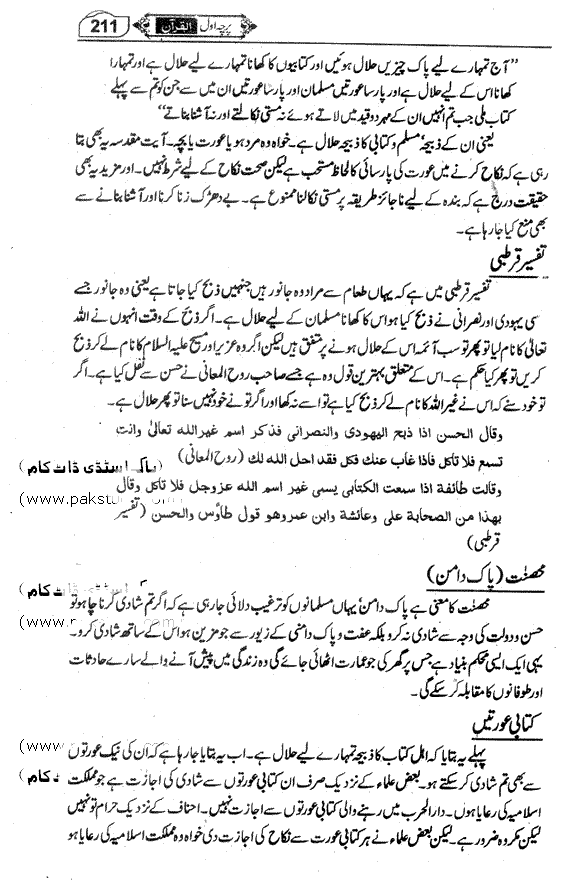 پرچہ اول القرآن 211
"آج تمہارے لیے پاک چیزیں حلال ہوئیں اور کتابیوں کا کھانا تمہارے لیے حلال ہے اور تمہارا
کھانا اس کے لیے حلال ہے اور پارسا عورتیں مسلمان اور پارسا عورتیں ان میں سے جن کو تم سے پہلے
کتاب ملی جب تم انہیں ان کے مہر دو قید میں لاتے ہوئے نہ مستی نکالتے اور نہ آشنا بناتے"
یعنی ان کے ذبیحہ، مسلم و کتابی کا ذبیحہ حلال ہے۔ خواہ وہ مرد ہو یا عورت یا بچہ۔ آیت مقدسہ یہ بھی بتا
رہی ہے کہ نکاح کرنے میں عورت کی پارسائی کا لحاظ مستحب ہے لیکن صحت نکاح کے لیے شرط نہیں۔ اور مزید یہ بھی
حقیقت درج ہے کہ بندہ کے لیے ناجائز طریقہ پر مستی نکالنا ممنوع ہے۔ بے دھڑک زنا کرنا اور آشنا بنانے سے
بھی منع کیا جا رہا ہے۔
تفسیر قرطبی
تفسیر قرطبی میں ہے کہ یہاں طعام سے مراد وہ جانور ہیں جنہیں ذبح کیا جاتا ہے یعنی وہ جانور جسے
سی یہودی اور نصرانی نے ذبح کیا ہو اس کا کھانا مسلمان کے لیے حلال ہے۔ اگر ذبح کے وقت انہوں نے اللہ
تعالیٰ کا نام لیا تو پھر تو سب آئمہ اس کے حلال ہونے پر متفق ہیں لیکن اگر وہ عزیر اور مسیح علیہ السلام کا نام لے کر ذبح
کریں تو پھر کیا حکم ہے۔ اس کے متعلق بہترین قول وہ ہے جسے صاحب روح المعانی نے حسن سے نقل کیا ہے۔ اگر
تو خود سنے کہ اس نے غیر اللہ کا نام لے کر ذبح کیا ہے تو اسے نہ کھا اور اگر تو نے خود نہیں سنا تو پھر حلال ہے۔
وقال الحسن اذا ذبح اليهودى والنصرانى فذكر اسم غيرالله تعالىٰ وانت
تسمع فلا تأكل فاذا غاب عنك فكل فقد احل الله لك (روح المعانی) پاک اسٹڈی ڈاٹ کام )
وقالت طائفة اذا سمعت الكتابى يسمى غير اسم الله عزوجل فلا تأكل وقال (www.pakstu .com
بهذا من الصحابة على وعائشة وابن عمروهو قول طاؤس والحسن (تفسیر
قرطبی)
محصنٰت (پاک دامن) ڈاٹ کام )
محصنٰت کا معنی ہے پاک دامن، یہاں مسلمانوں کو ترغیب دلائی جا رہی ہے کہ اگر تم شادی کرنا چاہو تو
حسن و دولت کی وجہ سے شادی نہ کرو بلکہ عفت و پاک دامنی کے زیور سے جو مزین ہو اس کے ساتھ شادی کرو۔ (www. .com
یہی ایک ایسی محکم بنیاد ہے جس پر گھر کی جو عمارت اٹھائی جائے گی وہ زندگی میں پیش آنے والے سارے حادثات
اور طوفانوں کا مقابلہ کر سکے گی۔
کتابی عورتیں
پہلے یہ بتایا کہ اہل کتاب کا ذبیحہ تمہارے لیے حلال ہے۔ اب یہ بتایا جا رہا ہے کہ اُن کی نیک عورتوں (www
سے بھی تم شادی کر سکتے ہو۔ بعض علماء کے نزدیک صرف ان کتابی عورتوں سے شادی کی اجازت ہے جو مملکت کام )
اسلامیہ کی رعایا ہوں۔ دارالحرب میں رہنے والی کتابی عورتوں سے اجازت نہیں۔ احناف کے نزدیک حرام تو نہیں
لیکن مکروہ ضرور ہے۔ لیکن بعض علماء نے ہر کتابی عورت سے نکاح کی اجازت دی خواہ وہ مملکت اسلامیہ کی رعایا ہو